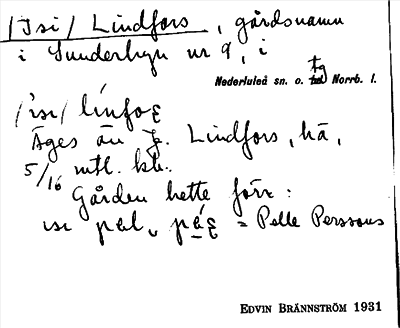 /Isi/ Lindfors, gårdsnamn
i Sunderbyn nr 9, i
tg
Nederluleå sn. o. Norrb. l.
/ısı/ línfoʂ
Äges än J. Lindfors, hä,
5/16 mtl. kr.
Gården hette förr:
ısı pal, = Pelle Perssons
EDVIN BRÄNNSTRÖM 1931